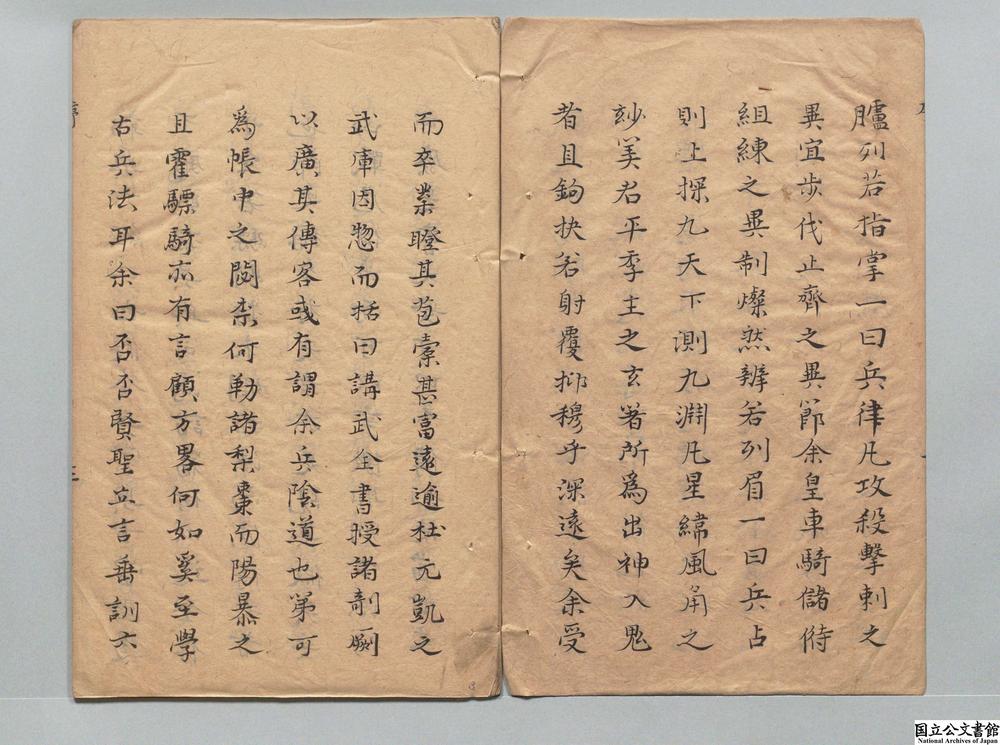 臚列若指掌一曰兵律凡攻殺擊刺之
異宜步伐止齊之異節余皇車騎儲偫
組練之異制燦然辨若列眉一曰兵占
則上探九天下測九淵凡星緯風角之
玅美君平季主之玄箸所為出神入鬼
者且鉤抉若射覆抑穆乎深遠矣余受
而卒業瞪其苞橐甚富遠逾杜元凱之
武庫因惣而括曰講武全書授諸剞劂
以廣其傳客或有謂余兵陰道也第可
為帳中之閟柰何勒諸梨棗而陽暴之
且霍驃騎亦有言顧方畧何如奚至學
古兵法耳余曰否否賢聖立言垂訓六
序
国立公文書館
National Archives of Japan